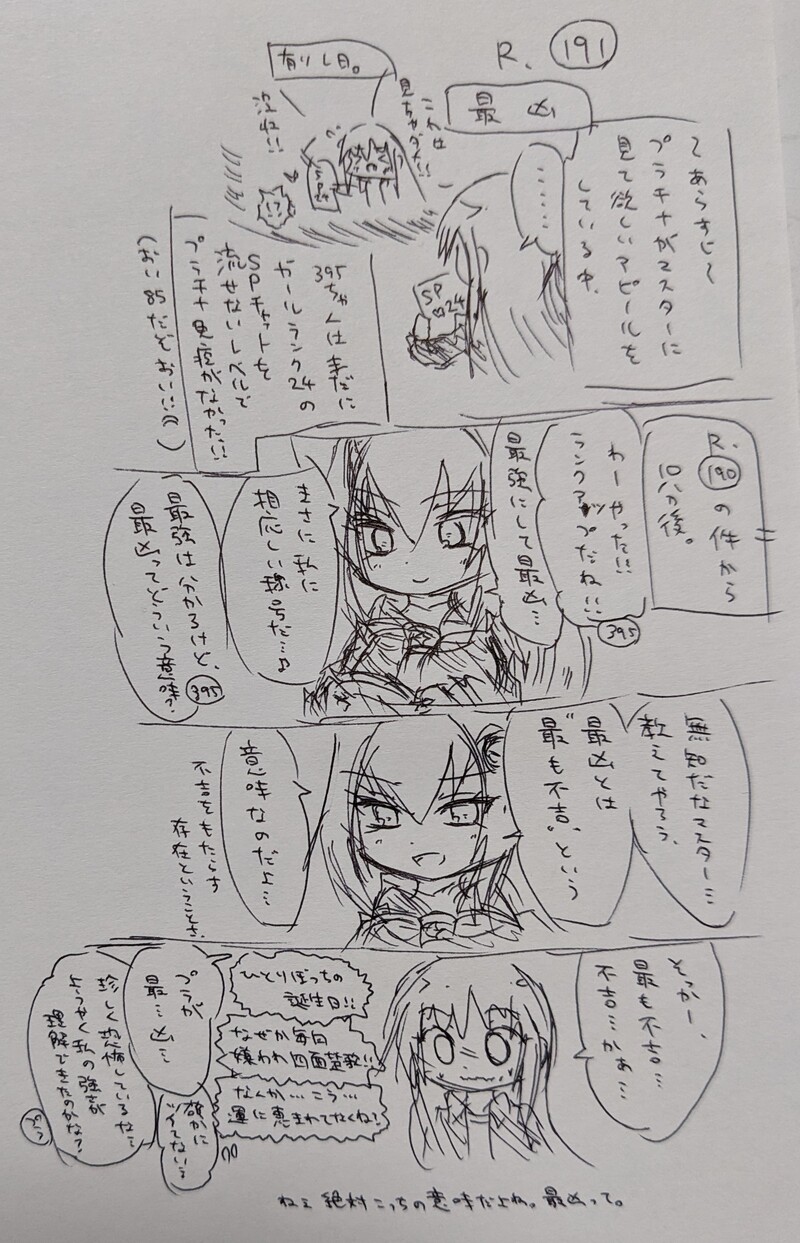 R. 191
最凶
〜あらすじ〜
プラチナがマスターに
見て欲しいアピールを
している中、
………
SP
♡24
有りし日。
これは
見ちゃダメ!!
没収!!
SP24
395ちゃんは未だに
ガールランク24の
SPチャットを
流せないレベルで
プラチナ免疫がなかった!!
(おい85だぞおい!!)
R.
190の件から
10分後。
わーやった!!
ランクアップだね!!
395
最強にして最凶…
まさに私に
相応しい称号だ…♪
最強は分かるけど、
最凶ってどういう意味?
395
無知だなマスター…
教えてやろう、
最凶とは
"最も不吉"という
意味なのだよ…
不吉をもたらす
存在ということさ。
そっかー、
最も不吉…
不吉…かぁ…
ひとりぼっちの
誕生日!!
なぜか毎日
嫌われ四面楚歌!!
なんか…こう…
運に恵まれてなくね?
プラが
最…凶…
確かに
ツイてない…
珍しく恐怖しているな…
ようやく私の強さが
理解できたのかな?
プラ
ねぇ絶対こっちの意味だよね。最凶って。